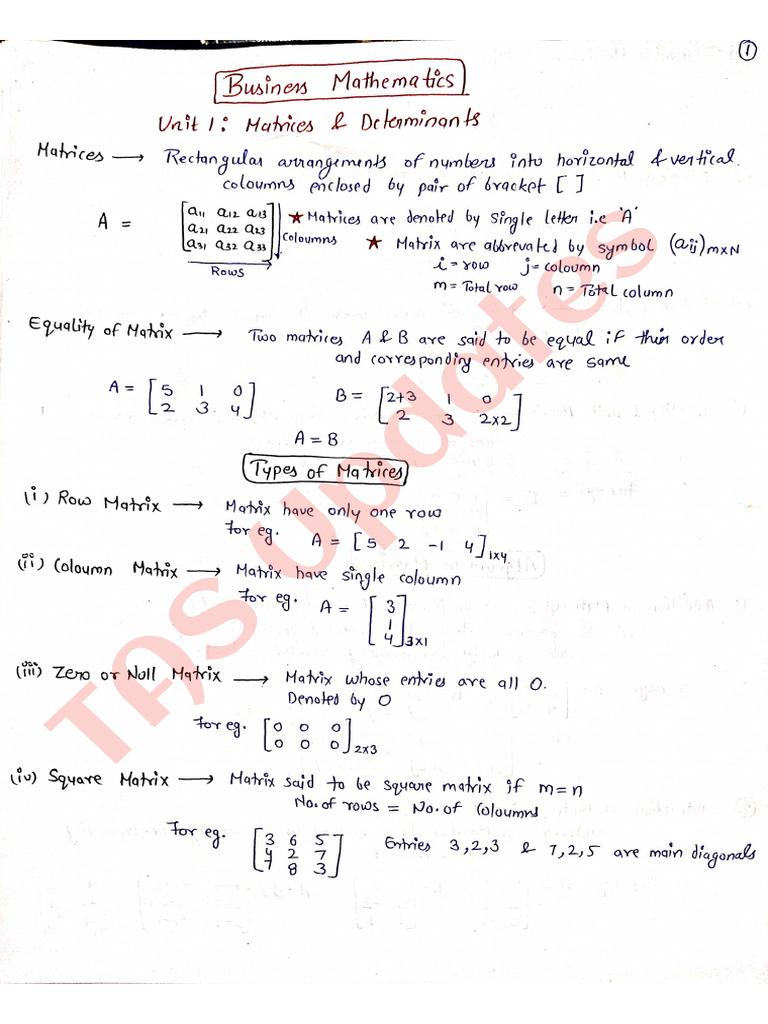 1
Business Mathematics
Unit 1: Matrices & Determinants
Matrices → Rectangular arrangements of numbers into horizontal & vertical
coloumns enclosed by pair of bracket [ ]
A = [a11 a12 a13
a21 a22 a23
a31 a32 a33]
Coloumns
Rows
★ Matrices are denoted by single letter i.e 'A'
★ Matrix are abbrevated by symbol (aij)m×N
i = row j = coloumn
m = Total row n = Total column
Equality of Matrix → Two matrices A & B are said to be equal if thier order
and corresponding entries are same
A = [5 1 0
2 3 4]
B = [2+3 1 0
2 3 2×2]
A = B
Types of Matrices
(i) Row Matrix → Matrix have only one row
for eg. A = [5 2 -1 4]1×4
(ii) Coloumn Matrix → Matrix have single coloumn
for eg. A = [3
1
4]3×1
(iii) Zero or Null Matrix → Matrix whose entries are all 0.
Denoted by O
for eg. [0 0 0
0 0 0]2×3
(iv) Square Matrix → Matrix said to be square matrix if m=n
No. of rows = No. of Coloumns
For eg. [3 6 5
4 2 7
7 8 3]
Entries 3,2,3 & 7,2,5 are main diagonals
TAS Updates